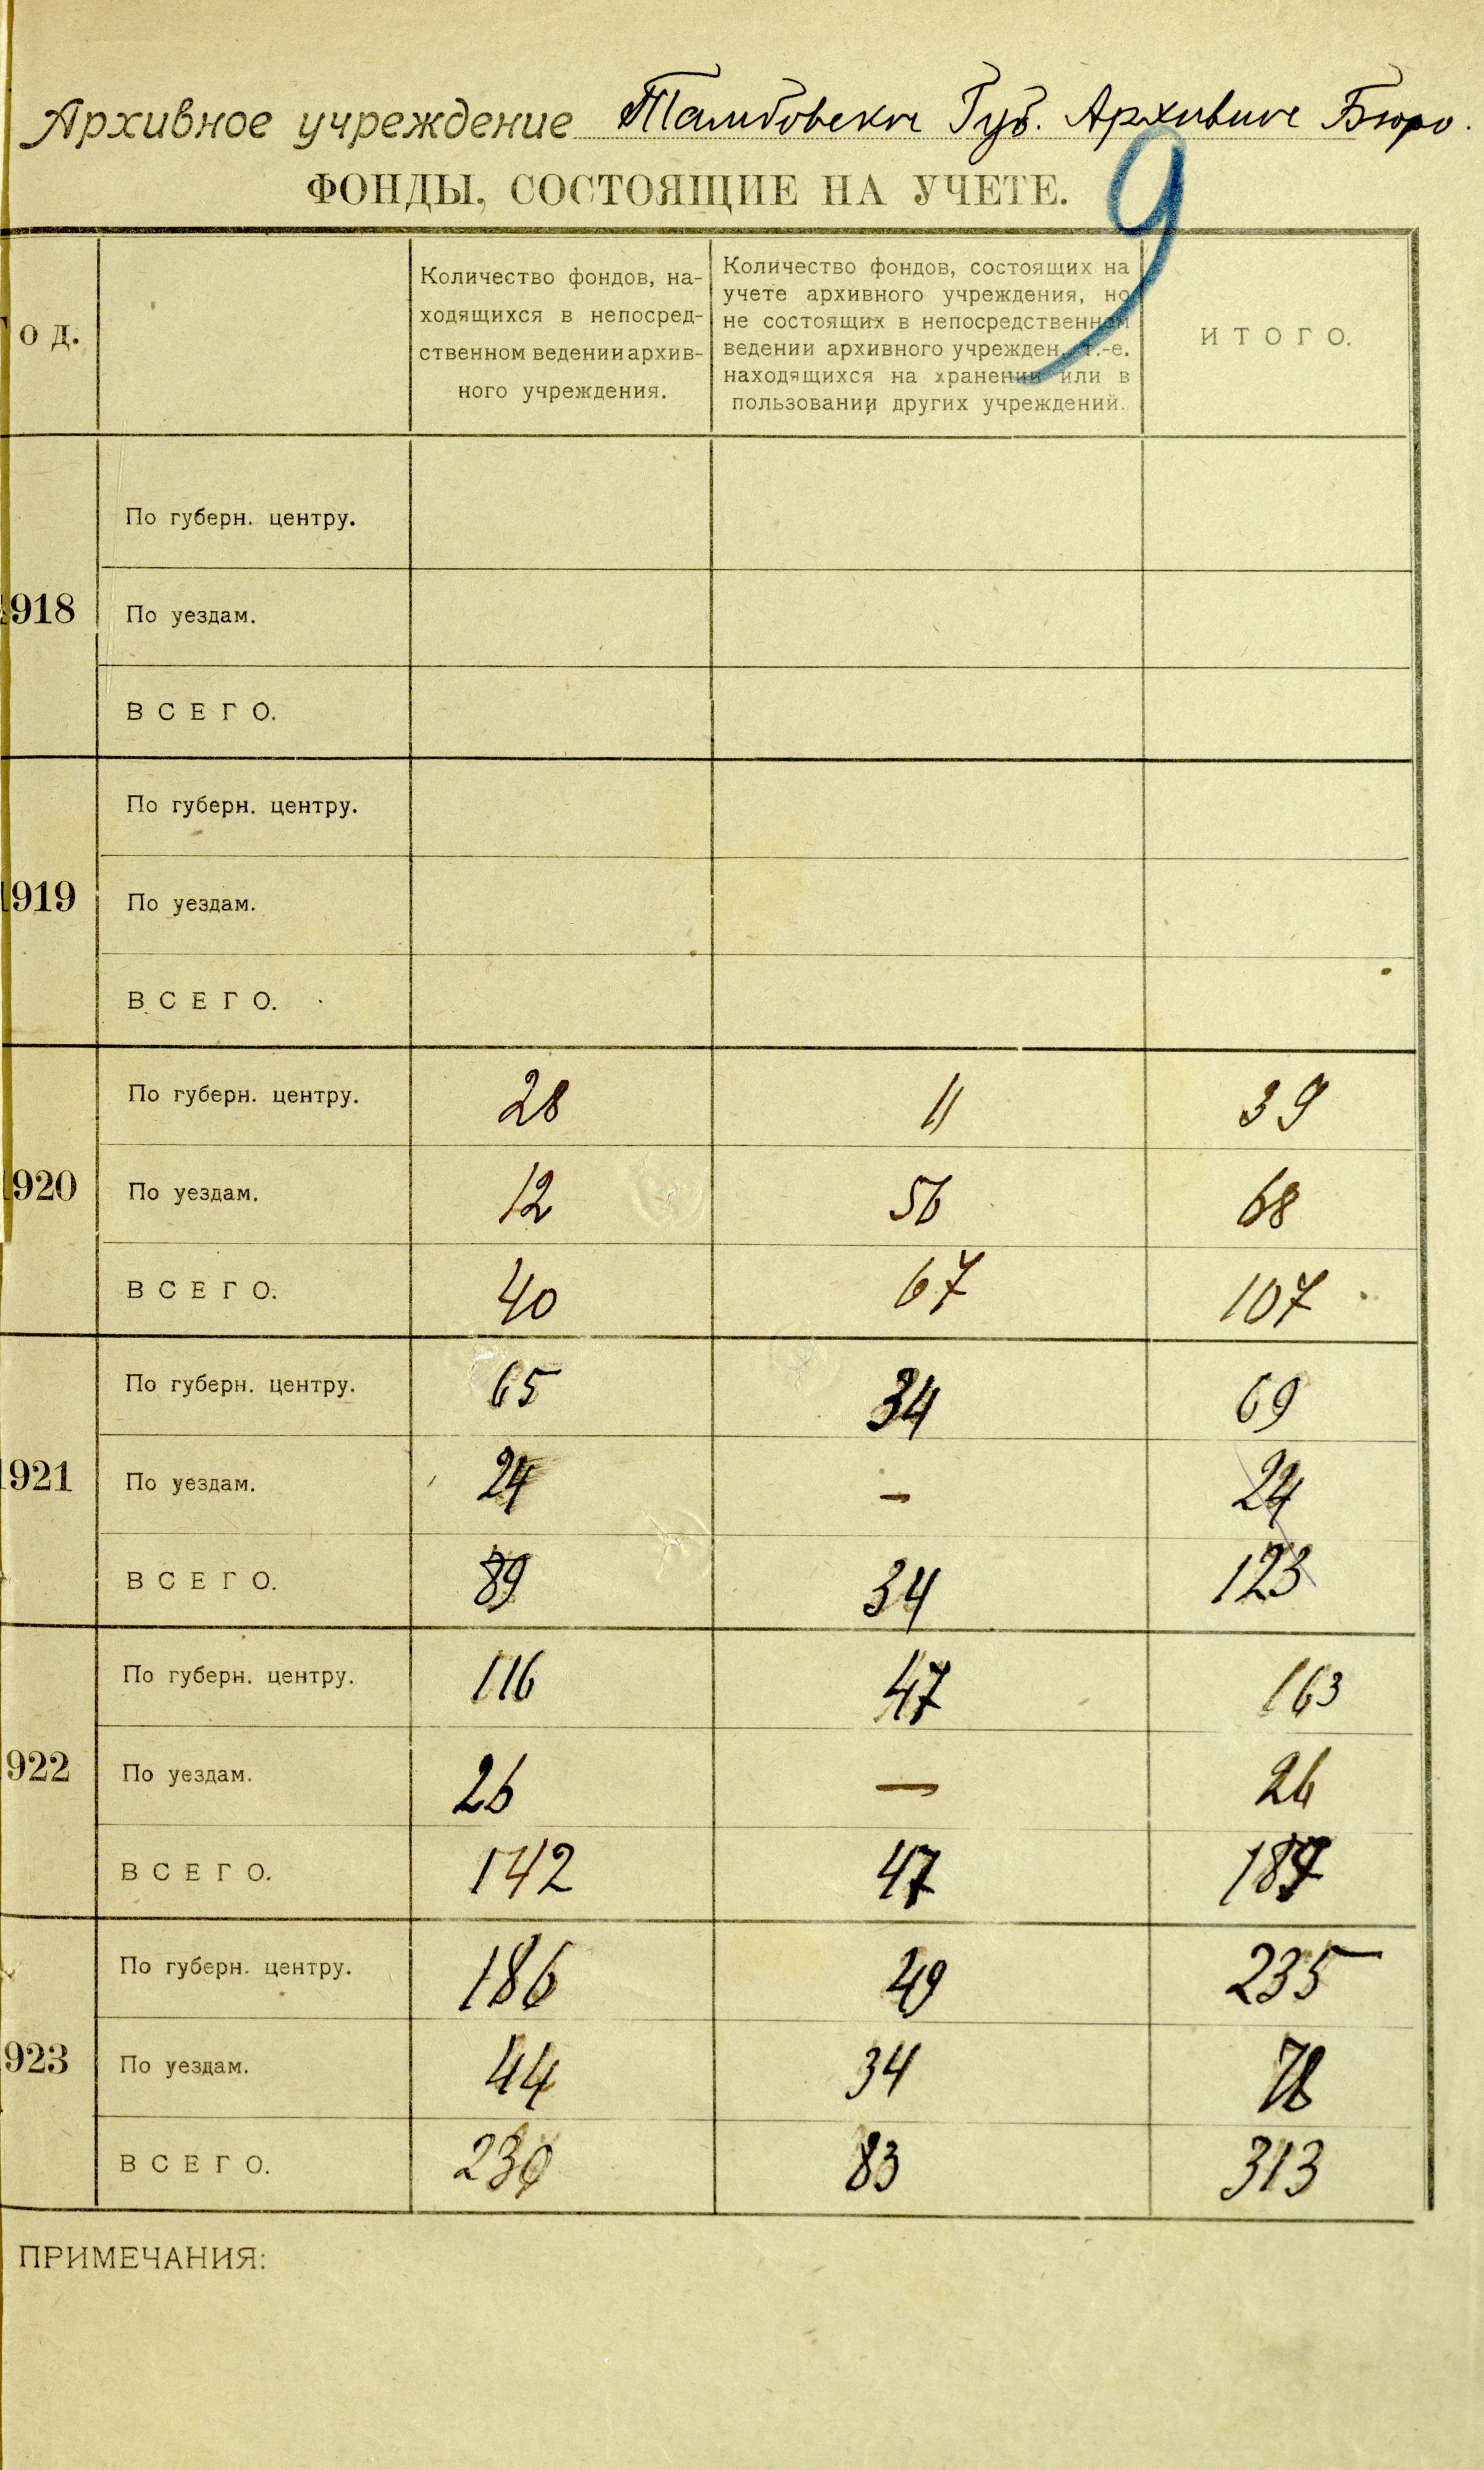 Архивное учреждение Тамбовское Губ. Архивное Бюро.
ФОНДЫ, СОСТОЯЩИЕ НА УЧЕТЕ.
9
Год.
Количество фондов, на-
ходящихся в непосред-
ственном ведении архив-
ного учреждения.
Количество фондов, состоящих на
учете архивного учреждения, но
не состоящих в непосредственном
ведении архивного учрежден. т.-е.
находящихся на хранении или в
пользовании других учреждений.
ИТОГО.
1918
По губерн. центру.
По уездам.
ВСЕГО.
1919
По губерн. центру.
По уездам.
ВСЕГО.
1920
По губерн. центру. 28 11 39
По уездам. 12 56 68
ВСЕГО. 40 67 107
1921
По губерн. центру. 65 34 69
По уездам. 24 — 24
ВСЕГО. 89 34 123
1922
По губерн. центру. 116 47 163
По уездам. 26 — 26
ВСЕГО. 142 47 189
1923
По губерн. центру. 186 49 235
По уездам. 44 34 78
ВСЕГО. 230 83 313
ПРИМЕЧАНИЯ: